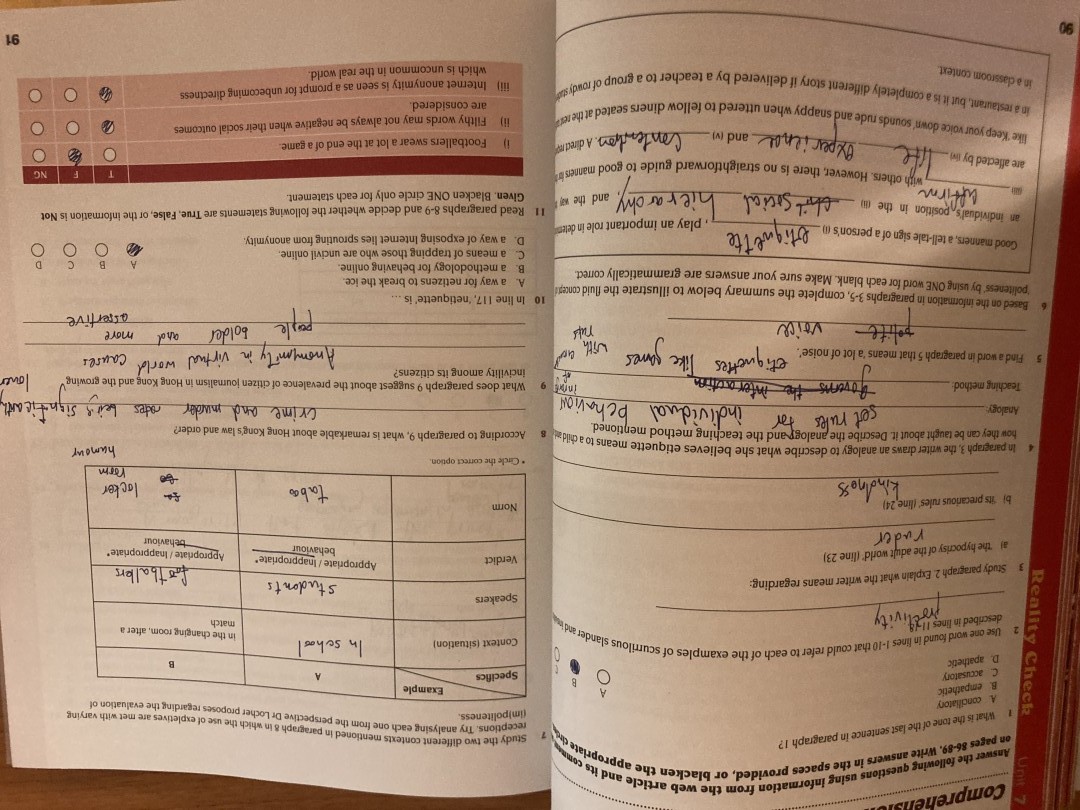 Reality Check
Unit 7
Comprehension
Answer the following questions using information from the web article and its
on pages 86-89. Write answers in the spaces provided, or blacken the appropriate
1 What is the tone of the last sentence in paragraph 1?
A. conciliatory
B. empathetic
C. accusatory
D. apathetic
A
B
C
2 Use one word found in lines 1-10 that could refer to each of the examples of scurrilous slander and
described in lines 11
proclivity
3 Study paragraph 2. Explain what the writer means regarding:
a) 'the hypocrisy of the adult world' (line 23)
ruder
b) 'its precarious rules' (line 24)
kindness
4 In paragraph 3, the writer draws an analogy to describe what she believes etiquette means to a child and
how they can be taught about it. Describe the analogy and the teaching method mentioned.
Analogy:
set rules for individual behaviour
Teaching method:
governs the interaction
etiquettes like games with rules
5 Find a word in paragraph 5 that means 'a lot of noise'.
polite voice
6 Based on the information in paragraphs 3-5, complete the summary below to illustrate the fluid concept
'politeness' by using ONE word for each blank. Make sure your answers are grammatically correct.
Good manners, a tell-tale sign of a person's (i) etiquette, play an important role in
an individual's position in the (ii) social hierarchy, and the way
(iii) affirm with others. However, there is no straightforward guide to good manners
are affected by (iv) life experience and (v) contention. A
like 'Keep your voice down' sounds rude and snappy when uttered to fellow diners seated at the
in a restaurant, but it is a completely different story if delivered by a teacher to a group of rowdy
in a classroom context.
90
7 Study the two different contexts mentioned in paragraph 8 in which the use of expletives are met with varying
receptions. Try analysing each one from the perspective Dr Locher proposes regarding the evaluation of
(im)politeness.
Example
Specifics
A
B
Context (situation)
In school
in the changing room, after a
match
Speakers
students
footballers
Verdict
Appropriate / Inappropriate*
behaviour
Appropriate / Inappropriate*
behaviour
Norm
taboo
locker
room
humour
* Circle the correct option.
8 According to paragraph 9, what is remarkable about Hong Kong's law and order?
crime and murder rates being significantly lower
9 What does paragraph 9 suggest about the prevalence of citizen journalism in Hong Kong and the growing
incivility among its citizens?
Anonymity in virtual world causes
people bolder and more assertive
10 In line 117, 'netiquette' is ...
A. a way for netizens to break the ice.
B. a methodology for behaving online.
C. a means of trapping those who are uncivil online.
D. a way of exposing Internet lies sprouting from anonymity.
A
B
C
D
11 Read paragraphs 8-9 and decide whether the following statements are True, False, or the information is Not
Given. Blacken ONE circle only for each statement.
T
F
NG
i) Footballers swear a lot at the end of a game.
ii) Filthy words may not always be negative when their social outcomes
are considered.
iii) Internet anonymity is seen as a prompt for unbecoming directness
which is uncommon in the real world.
91